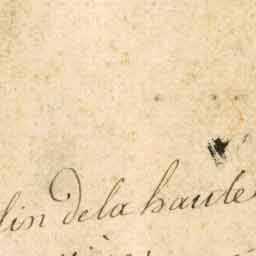 lin dela haute